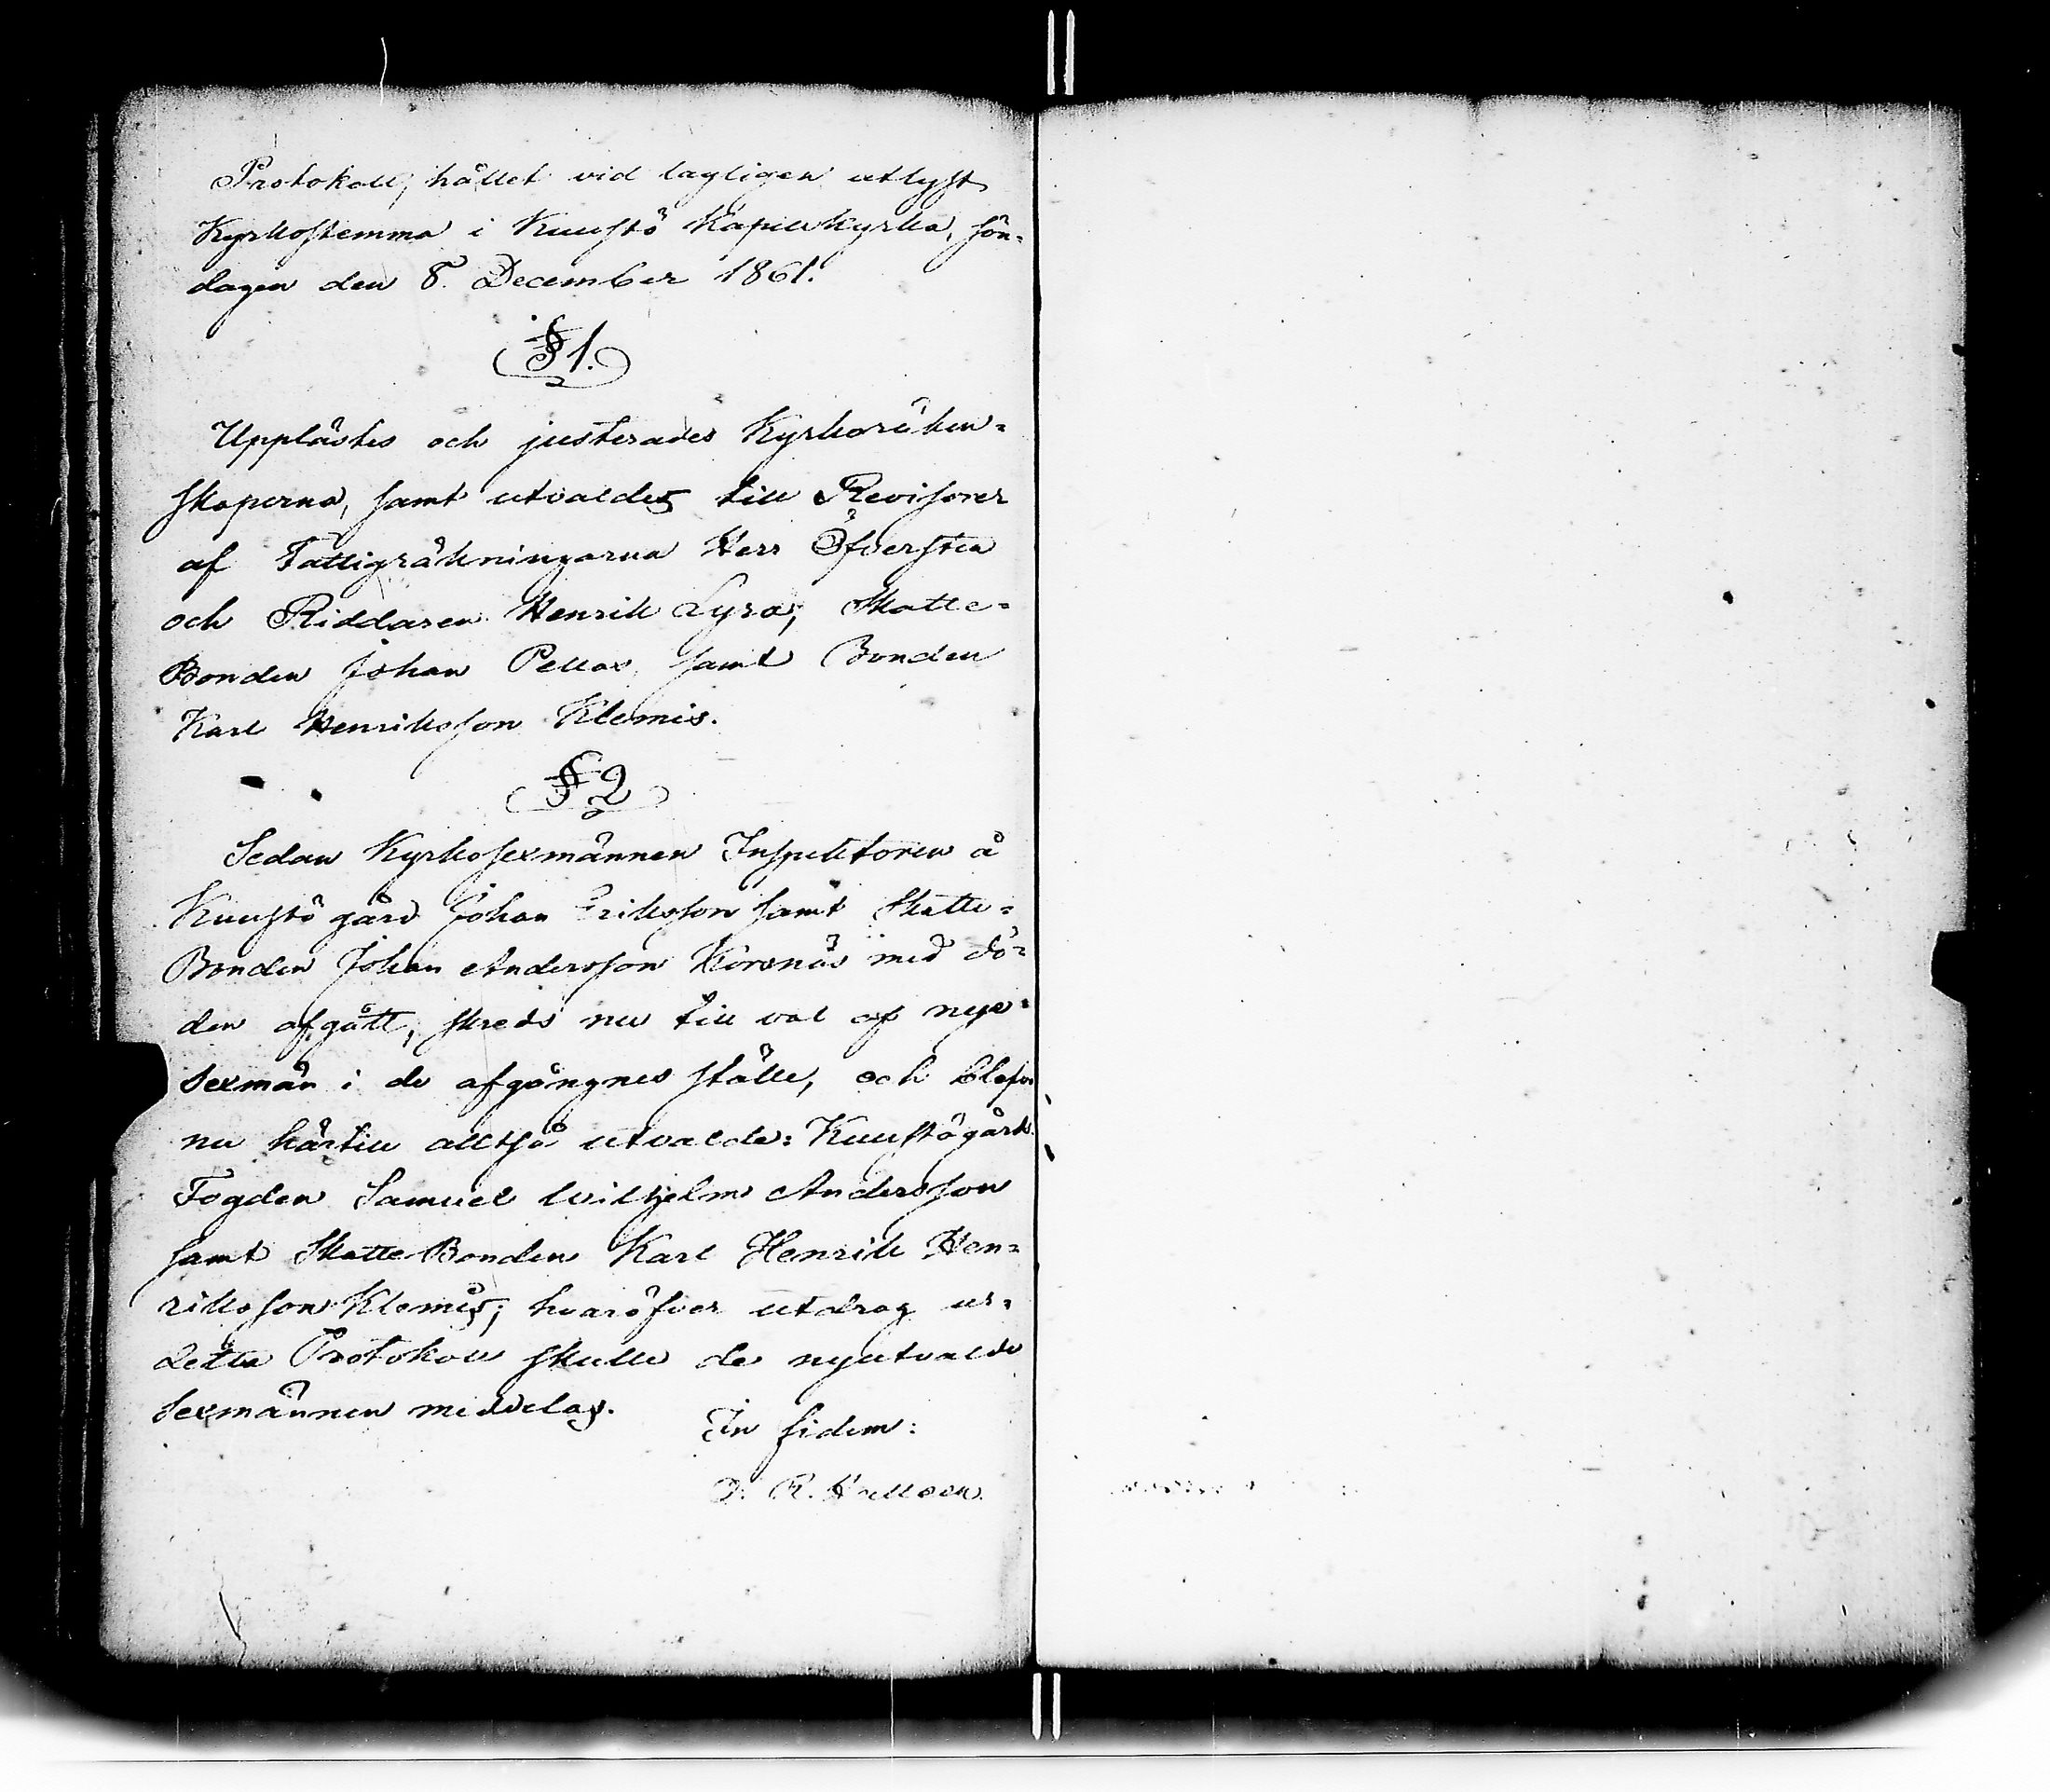 Protokoll, hållet vid lagligen utlyst
Kyrkostemma i Kuustö Kapellkyrka, sön-
dagen den 8. December 1861.
§ 1.
Upplästes och justerades Kyrkoräken-
skaperna, samt utvaldes till Revisorer
af Fattigräkningarna Herr Öfversten
och Riddaren Henrik Lyra, Skatte-
Bonden Johan Pellas, samt Bonden
Karl Henriksson Klemis.
§ 2
Sedan Kyrkosexmännen Inspektoren å
Kuustö gård Johan Eriksson samt Skatte-
Bonden Johan Andersson Korsnäs med dö-
den afgått, skreds nu till val af nya
Sexmän i de afgångnes ställe, och blefvo
nu härtill alltså utvalde: Kuustögårds
Fogden Samuel Wilhelm Andersson
samt Skatte Bonden Karl Henrik Hen-
riksson Klemis; hvaröfver utdrag ur
detta Protokoll skulle de nyutvalde
Sexmännen meddelas.
In fidem:
R.